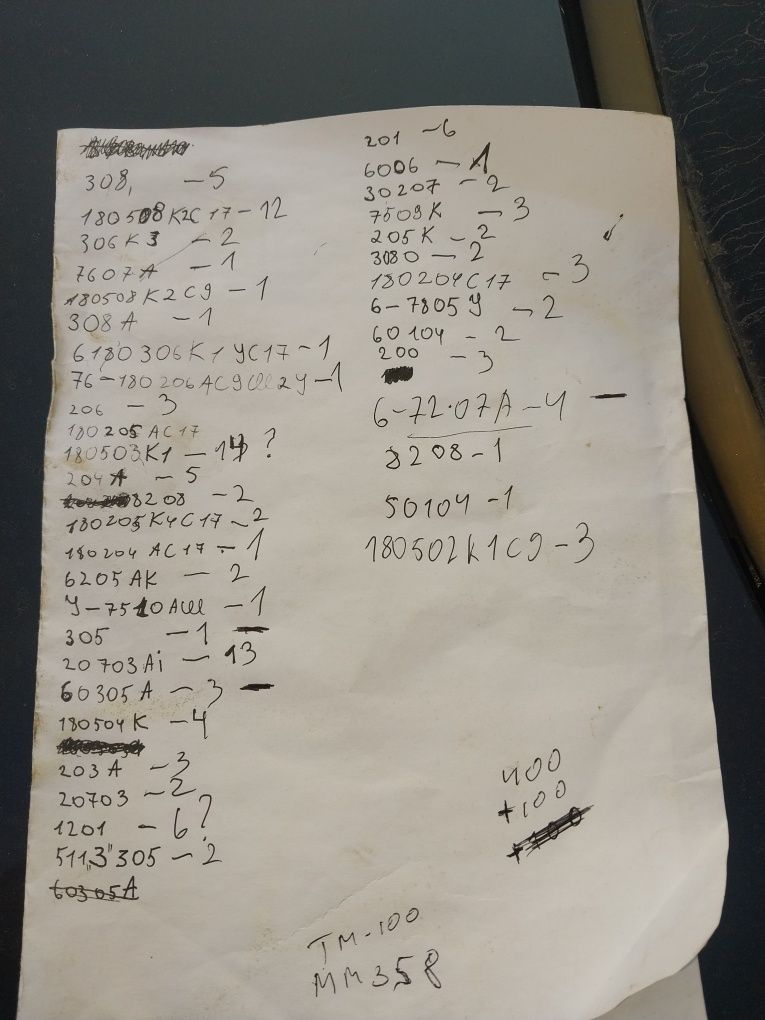 308, - 5
180508К2С17 - 12
306К3 - 2
7607А - 1
180508К2С9 - 1
308А - 1
6180306К1УС17 - 1
76-180206АС9Ш2У - 1
206 - 3
180205АС17
180503К1 - 14 ?
204А - 5
8208 - 2
180205К4С17 - 2
180204АС17 - 1
6205АК - 2
У-7510АШ - 1
305 - 1 —
20703Аi - 13
60305А - 3 —
180504К - 4
203А - 3
20703 - 2
1201 - 6 ?
511"3"305 - 2
60305А
201 - 6
6006 - 1
30207 - 2
7509К - 3
205К - 2
3080 - 2
180204С17 - 3
6-7805У - 2
60104 - 2
200 - 3
6-72.07А - 4 —
8208 - 1
50104 - 1
180502К1С9 - 3
400
+100
+100
ТМ-100
ММ358